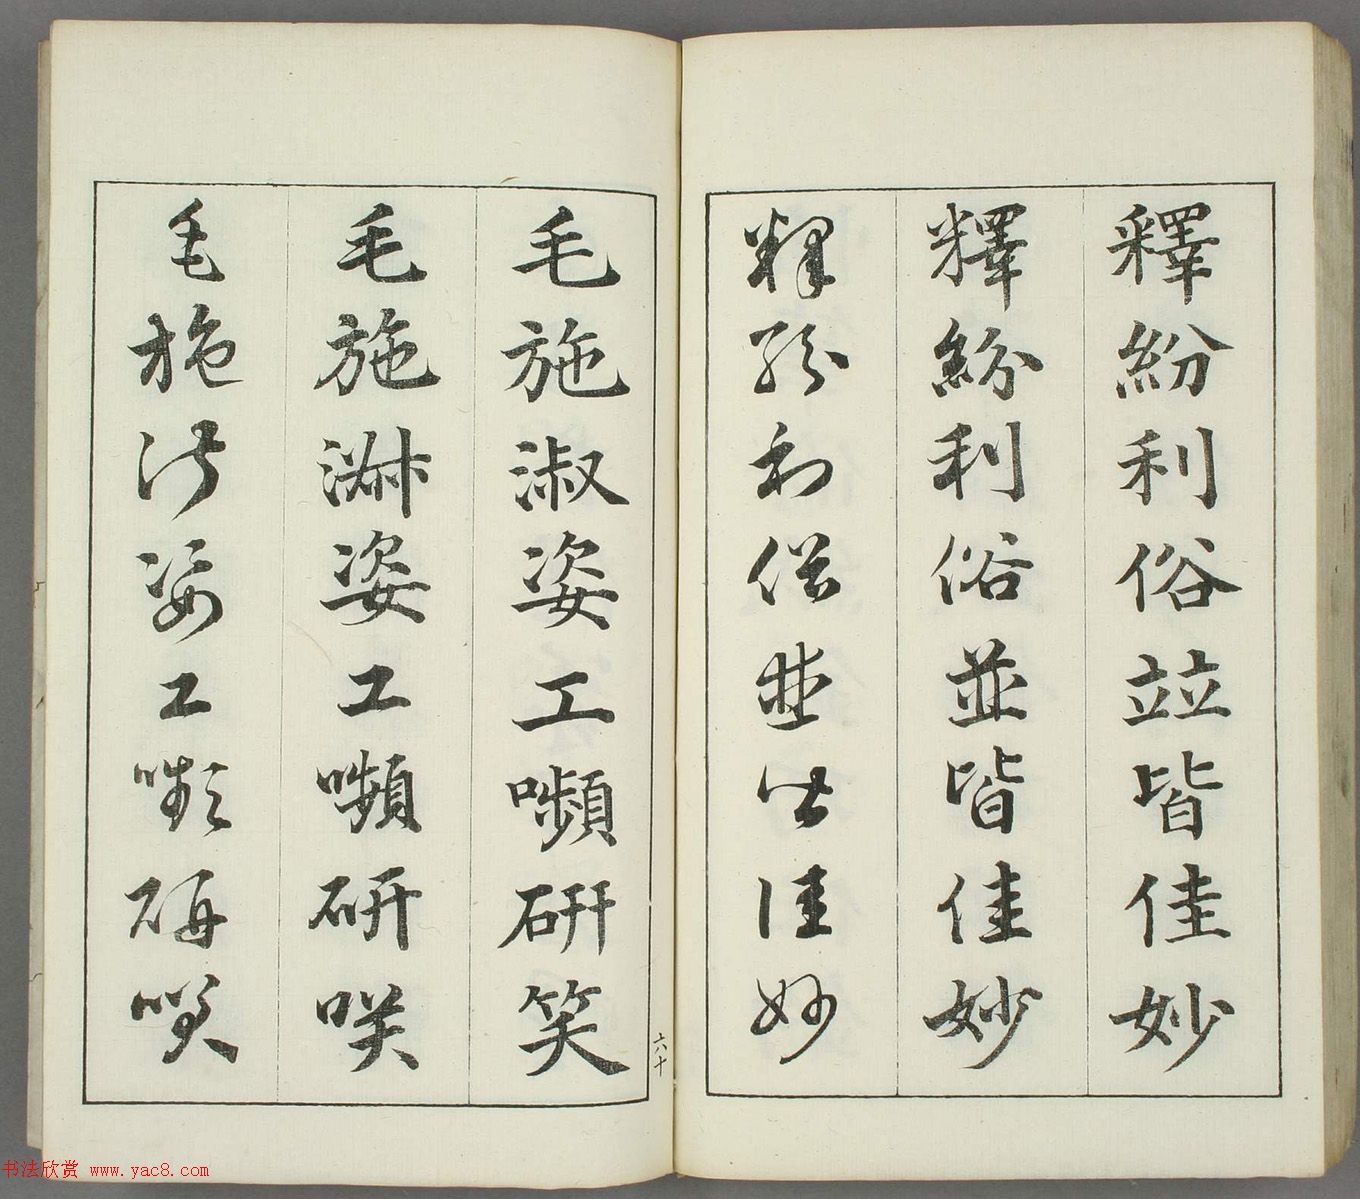 釋紛利俗竝皆佳妙
釋紛利俗並皆佳妙
釋紛利俗並皆佳妙
毛施淑姿工嚬研笑
毛施淋姿工嚬研咲
毛施淑姿工嚬研咲
六十
书法欣赏 www.yac8.com